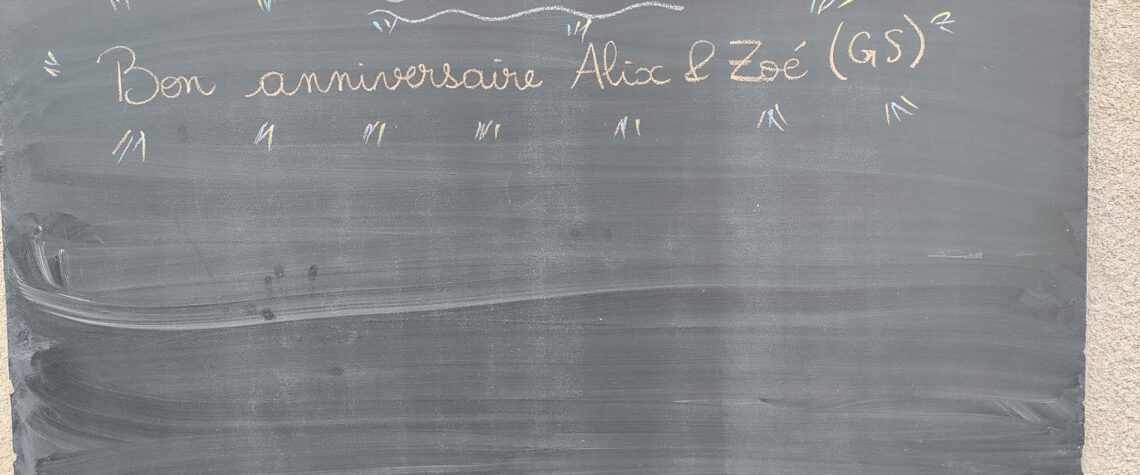 Bon anniversaire Alix & Zoé (GS)